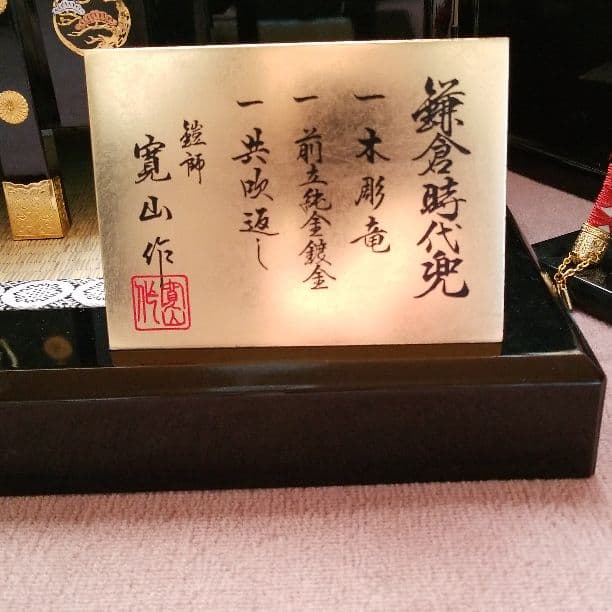 鎌倉時代兜
一 木彫竜
一 前立純金鍍金
一 共吹返し
鎧師
寛山作
寛山作